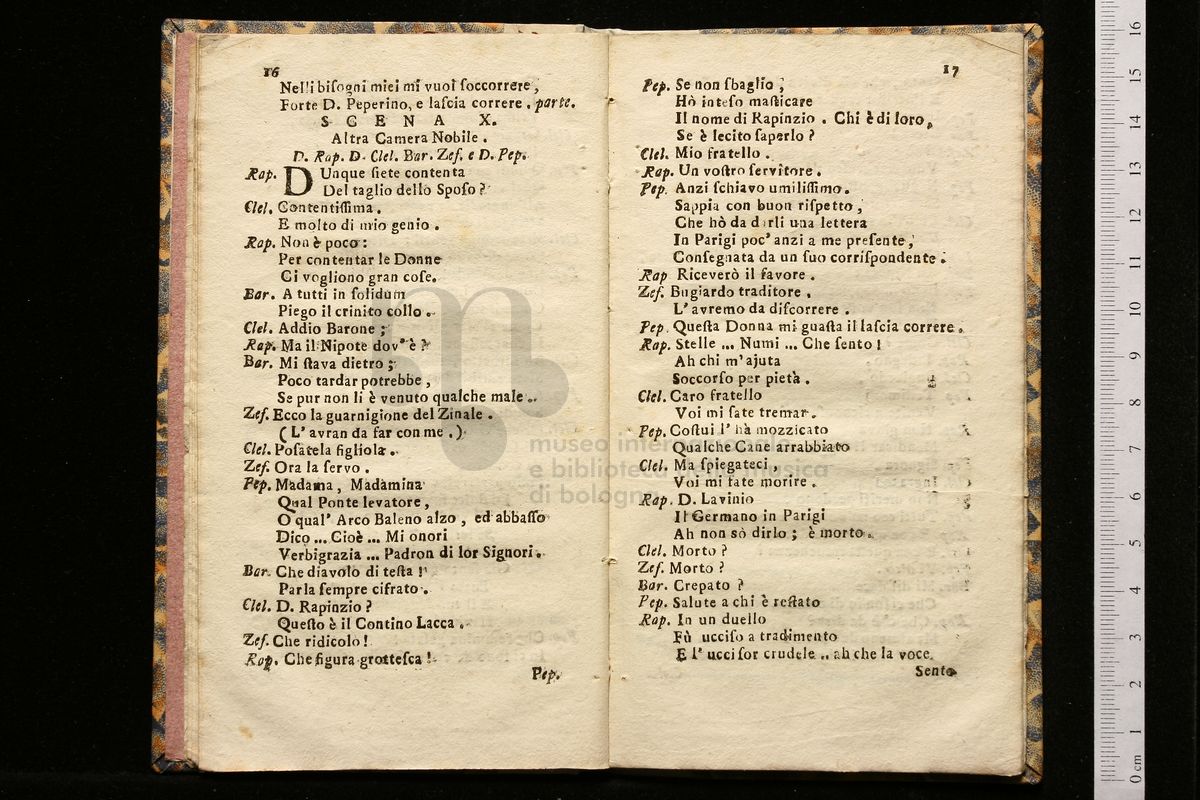 16
Nelli biſogni miei mi vuol ſoccorrere,
Forte D. Peperino, e laſcia correre. parte.
SCENA X.
Altra Camera Nobile.
D. Rap. D. Clel. Bar. Zef. e D. Pep.
Rap. DUnque ſiete contenta
Del taglio dello Spoſo?
Clel. Contentiſſima.
E molto di mio genio.
Rap. Non è poco:
Per contentar le Donne
Ci vogliono gran coſe.
Bar. A tutti in ſolidum
Piego il crinito collo.
Clel. Addio Barone;
Rap. Ma il Nipote dov' è?
Bar. Mi ſtava dietro;
Poco tardar potrebbe,
Se pur non li è venuto qualche male..
Zef. Ecco la guarnigione del Zinale.
(L' avran da far con me.)
Clel. Poſatela figliola.
Zef. Ora la ſervo.
Pep. Madama, Madamina
Qual Ponte levatore,
O qual' Arco Baleno alzo, ed abbaſſo
Dico ... Cioè ... Mi onori
Verbigrazia ... Padron di lor Signori.
Bar. Che diavolo di teſta!
Parla ſempre cifrato.
Clel. D. Rapinzio?
Queſto è il Contino Lacca.
Zef. Che ridicolo!
Rap. Che figura grotteſca!
Pep.
17
Pep. Se non ſbaglio;
Hò inteſo maſticare
Il nome di Rapinzio. Chi è di loro,
Se è lecito ſaperlo?
Clel. Mio fratello.
Rap. Un voſtro ſervitore.
Pep. Anzi ſchiavo umiliſſimo.
Sappia con buon riſpetto,
Che hò da darli una lettera
In Parigi poc' anzi a me preſente,
Conſegnata da un ſuo corriſpondente.
Rap Riceverò il favore.
Zef. Bugiardo traditore.
L' avremo da diſcorrere.
Pep. Queſta Donna mi guaſta il laſcia correre.
Rap. Stelle ... Numi ... Che ſento!
Ah chi m' ajuta
Soccorſo per pietà.
Clel. Caro fratello
Voi mi fate tremar.
Pep. Coſtui l' hà mozzicato
Qualche Cane arrabbiato
Clel. Ma ſpiegateci,
Voi mi fate morire.
Rap. D. Lavinio
Il Germano in Parigi
Ah non sò dirlo; è morto.
Clel. Morto?
Zef. Morto?
Bar. Crepato?
Pep. Salute a chi è reſtato
Rap. In un duello
Fù ucciſo a tradimento
E l' ucciſor crudele .. ah che la voce
Sento
museo internazionale
e biblioteca della musica
di bologna
16
15
14
13
12
11
10
9
8
7
6
5
4
3
2
1
0 cm